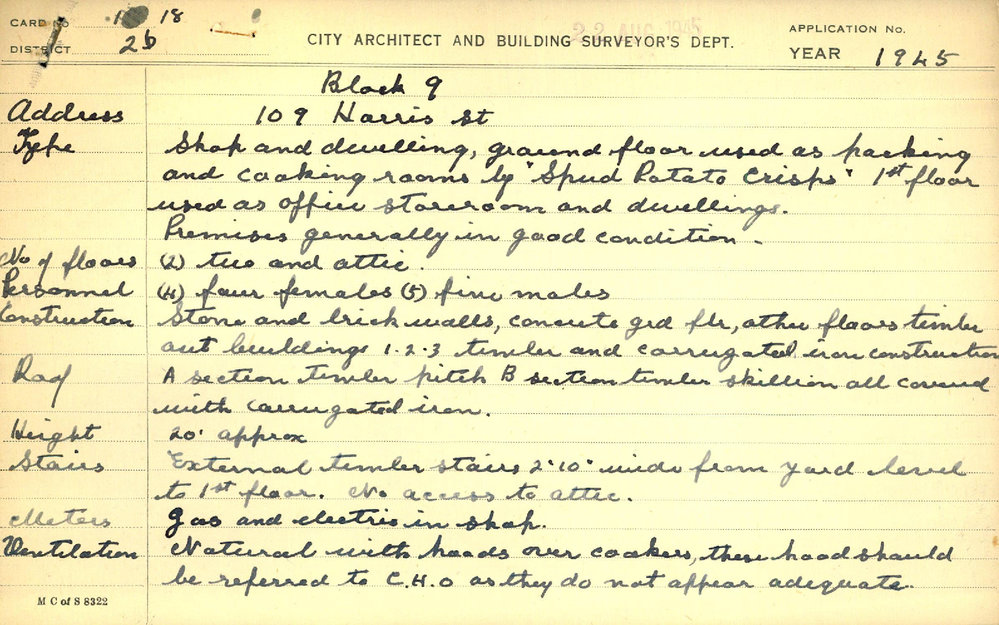 CARD No 18
DISTRICT 2b
22 AUG 1945
CITY ARCHITECT AND BUILDING SURVEYOR'S DEPT.
APPLICATION No.
YEAR 1945
Block 9
Address 109 Harris St
Type Shop and dwelling, ground floor used as packing
and cooking rooms by "Spud Potato Crisps" 1st floor
used as office storeroom and dwellings.
Premises generally in good condition.
No of floors (2) two and attic.
Personnel (4) four females (5) five males
Construction Stone and brick walls, concrete grd flr, other floors timber
out buildings 1.2.3 timber and corrugated iron construction
Roof A section timber pitch B section timber skillion all covered
with corrugated iron.
Height 20' approx
Stairs External timber stairs 2'10" wide from yard level
to 1st floor. No access to attic.
Meters Gas and electric in shop.
Ventilation Natural with hoods over cookers, these hood should
be referred to C.H.O as they do not appear adequate.
M C of S 8322